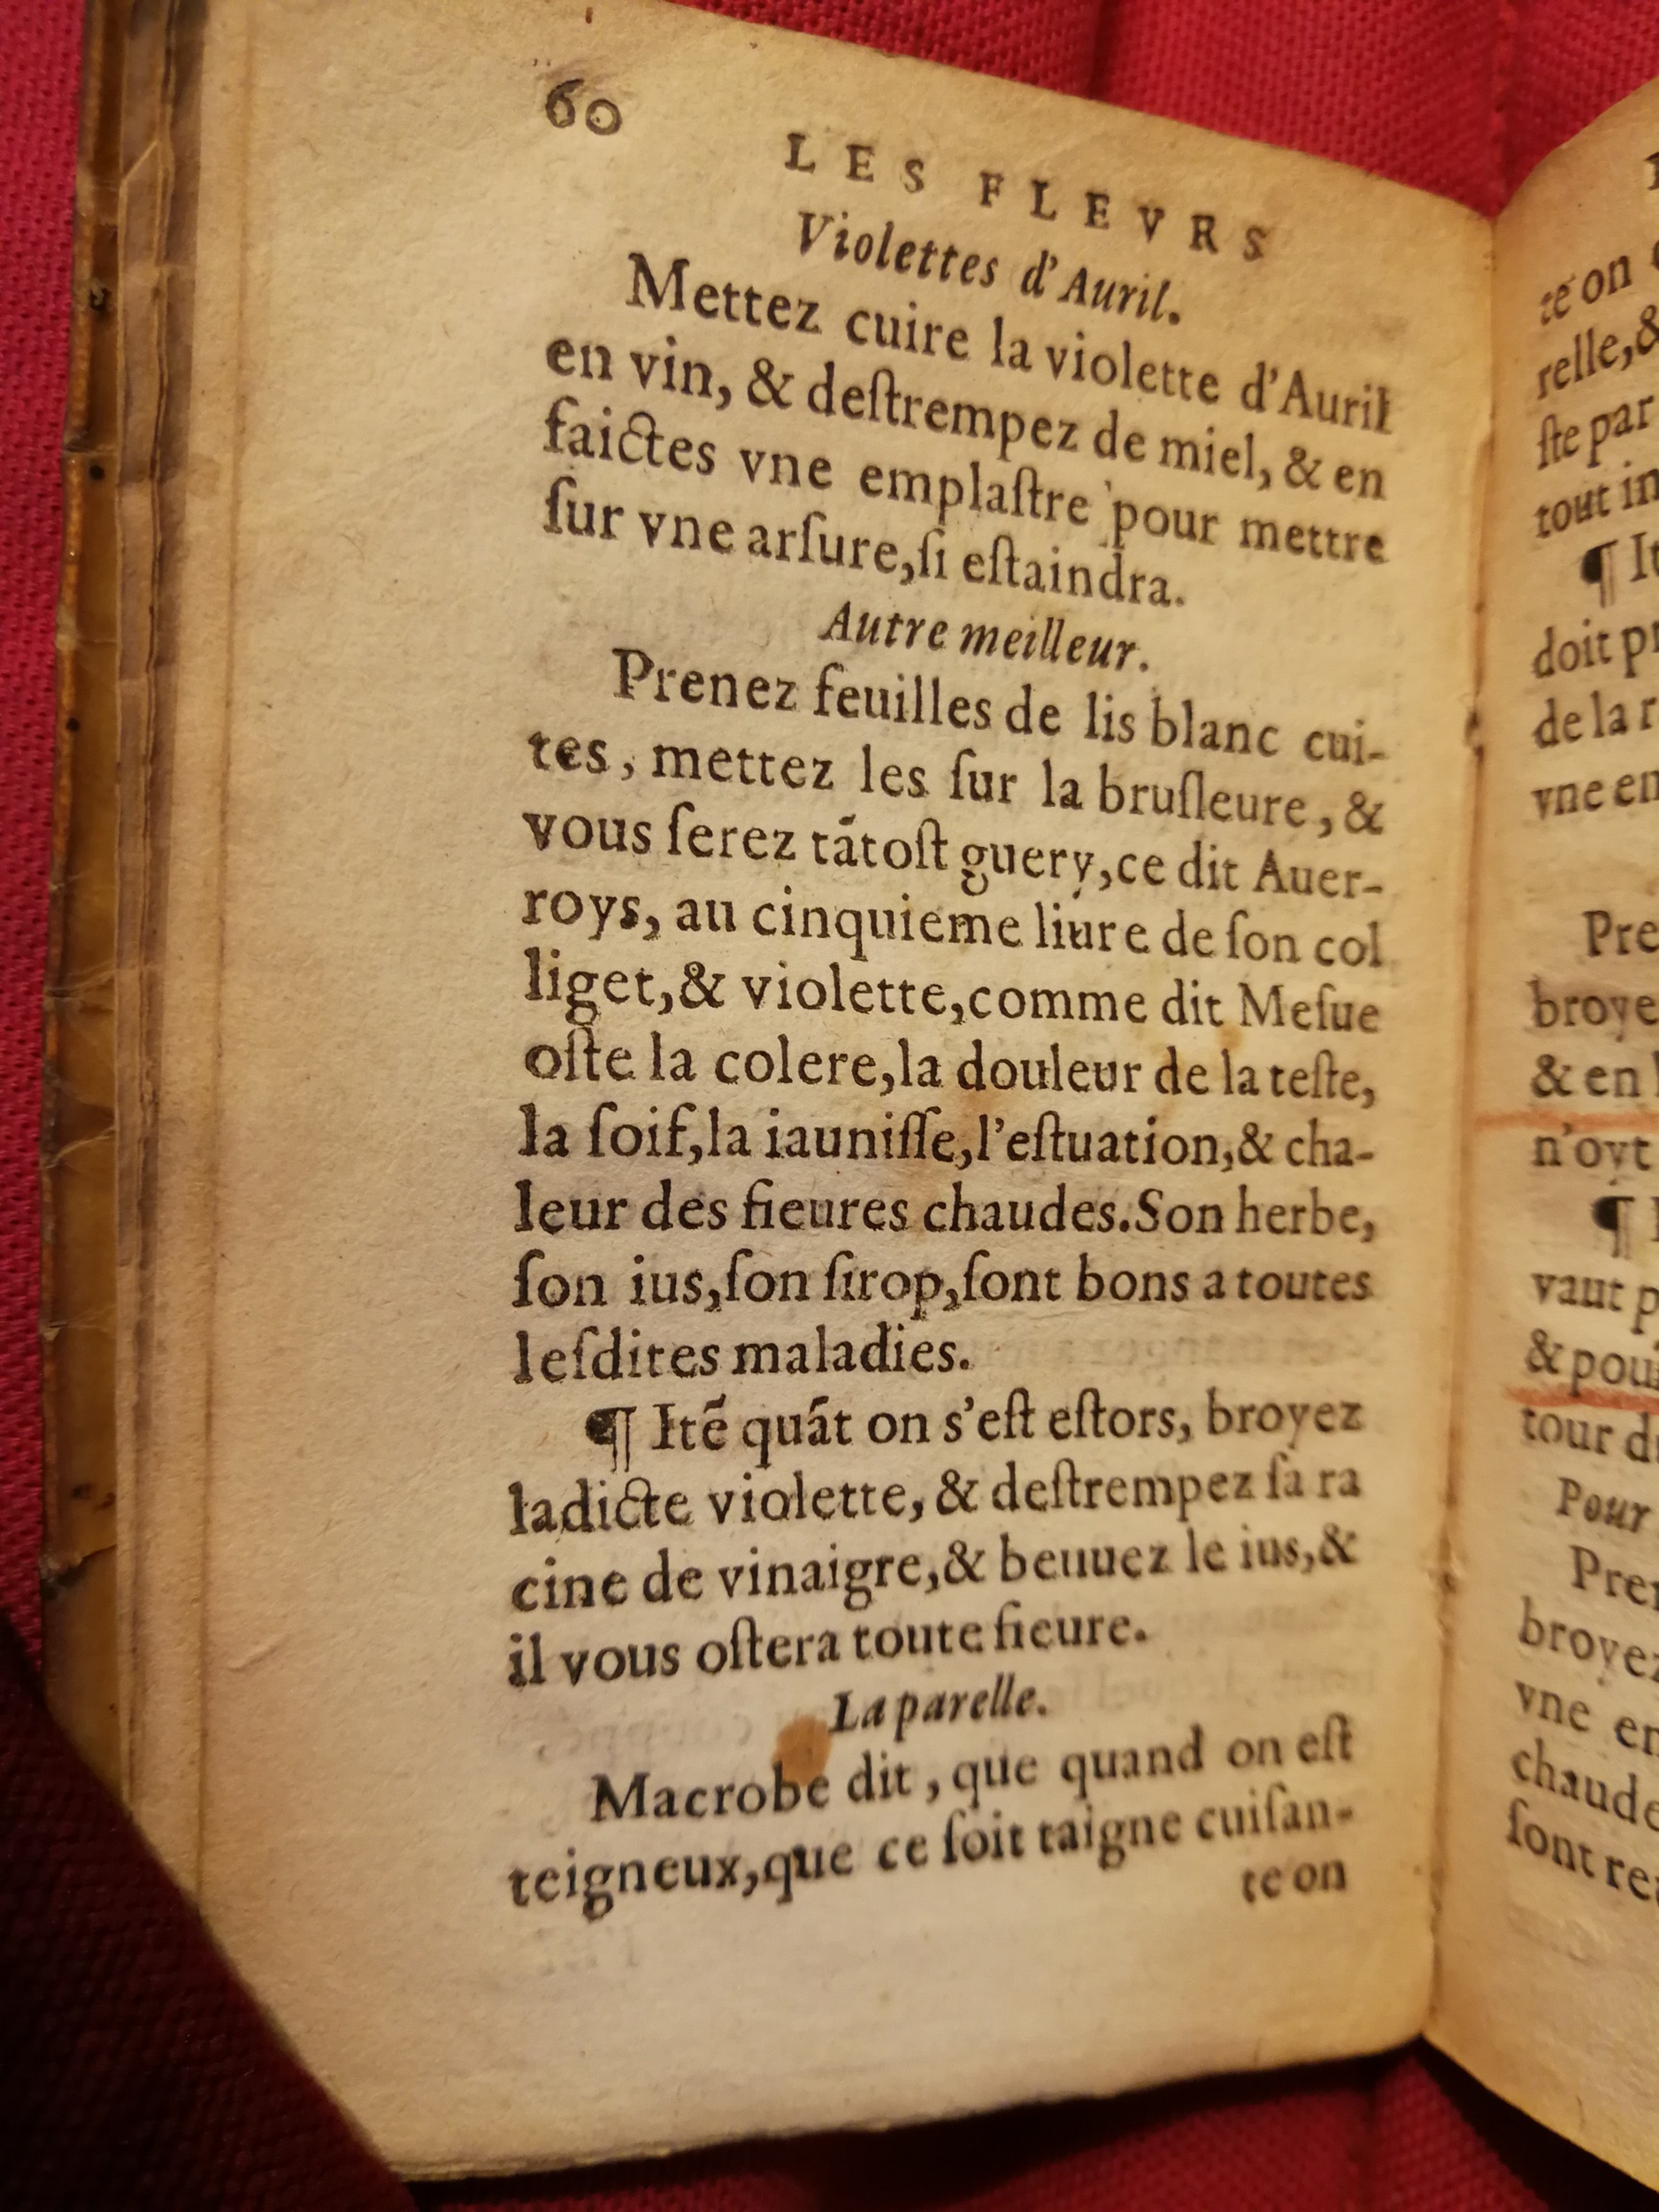 60
LES FLEVRS
Violettes d'Auril.
Mettez cuire la violette d'Auril
en vin, & deſtrempez de miel, & en
faictes vne emplaſtre pour mettre
ſur vne arſure,ſi eſtaindra.
Autre meilleur.
Prenez feuilles de lis blanc cui-
tes, mettez les ſur la bruſleure, &
vous ſerez tātoſt guery,ce dit Auer-
roys, au cinquieme liure de ſon col
liget,& violette,comme dit Meſue
oſte la colere,la douleur de la teſte,
la ſoif,la iauniſſe,l'eſtuation,& cha-
leur des fieures chaudes.Son herbe,
ſon ius,ſon ſirop,ſont bons a toutes
leſdites maladies.
¶ Itē quāt on s'eſt eſtors, broyez
ladicte violette, & deſtrempez ſa ra
cine de vinaigre,& beuuez le ius,&
il vous oſtera toute fieure.
La parelle.
Macrobe dit, que quand on eſt
teigneux,que ce ſoit taigne cuiſan-
te on
te on
relle,&
ſte par
tout in
¶ It
doit pr
de la r
vne en
Pre
broye
& en
n'oyt
¶
vaut p
& pou
tour d
Pour
Pren
broyez
vne en
chaude
ſont re